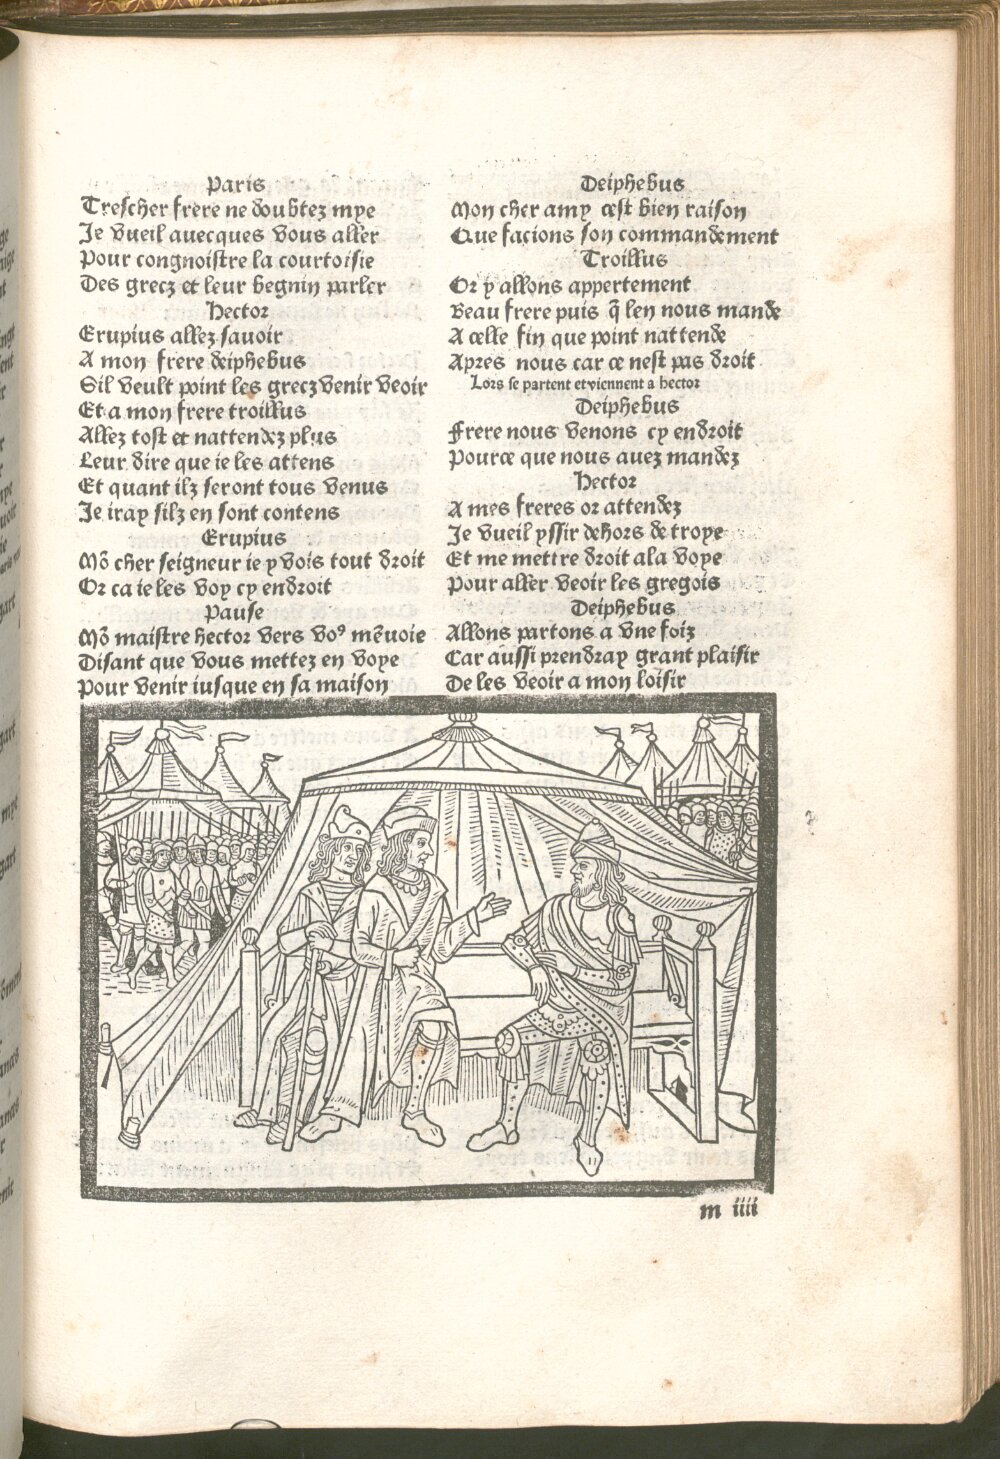 Paris
Trescher frere ne doubtez mye
Je vueil auecques vous aller
Pour congnoistre la courtoisie
Des grecz et leur begnin parler
Hector
Erupius allez sauoir
A mon frere deiphebus
Sil veult point les grecz venir veoir
Et a mon frere troillus
Allez tost et nattendez plus
Leur dire que ie les attens
Et quant ilz seront tous venus
Je iray silz en sont contens
Erupius
Mõ cher seigneur ie y vois tout droit
Or ca ie les voy cy endroit
Pause
Mõ maistre hector vers voꝰ mẽuoie
Disant que vous mettez en voye
Pour venir iusque en sa maison
Deiphebus
Mon cher amy cest bien raison
Que facions son commandement
Troillus
Or y allons appertement
Beau frere puis q̃ len nous mande
A celle fin que point nattende
Apres nous car ce nest pas droit
Lors se partent et viennent a hector
Deiphebus
Frere nous venons cy endroit
Pource que nous auez mandez
Hector
A mes freres or attendez
Je vueil yssir dehors de troye
Et me mettre droit ala voye
Pour aller veoir les gregois
Deiphebus
Allons partons a vne foiz
Car aussi prendray grant plaisir
De les veoir a mon loisir
m iiii